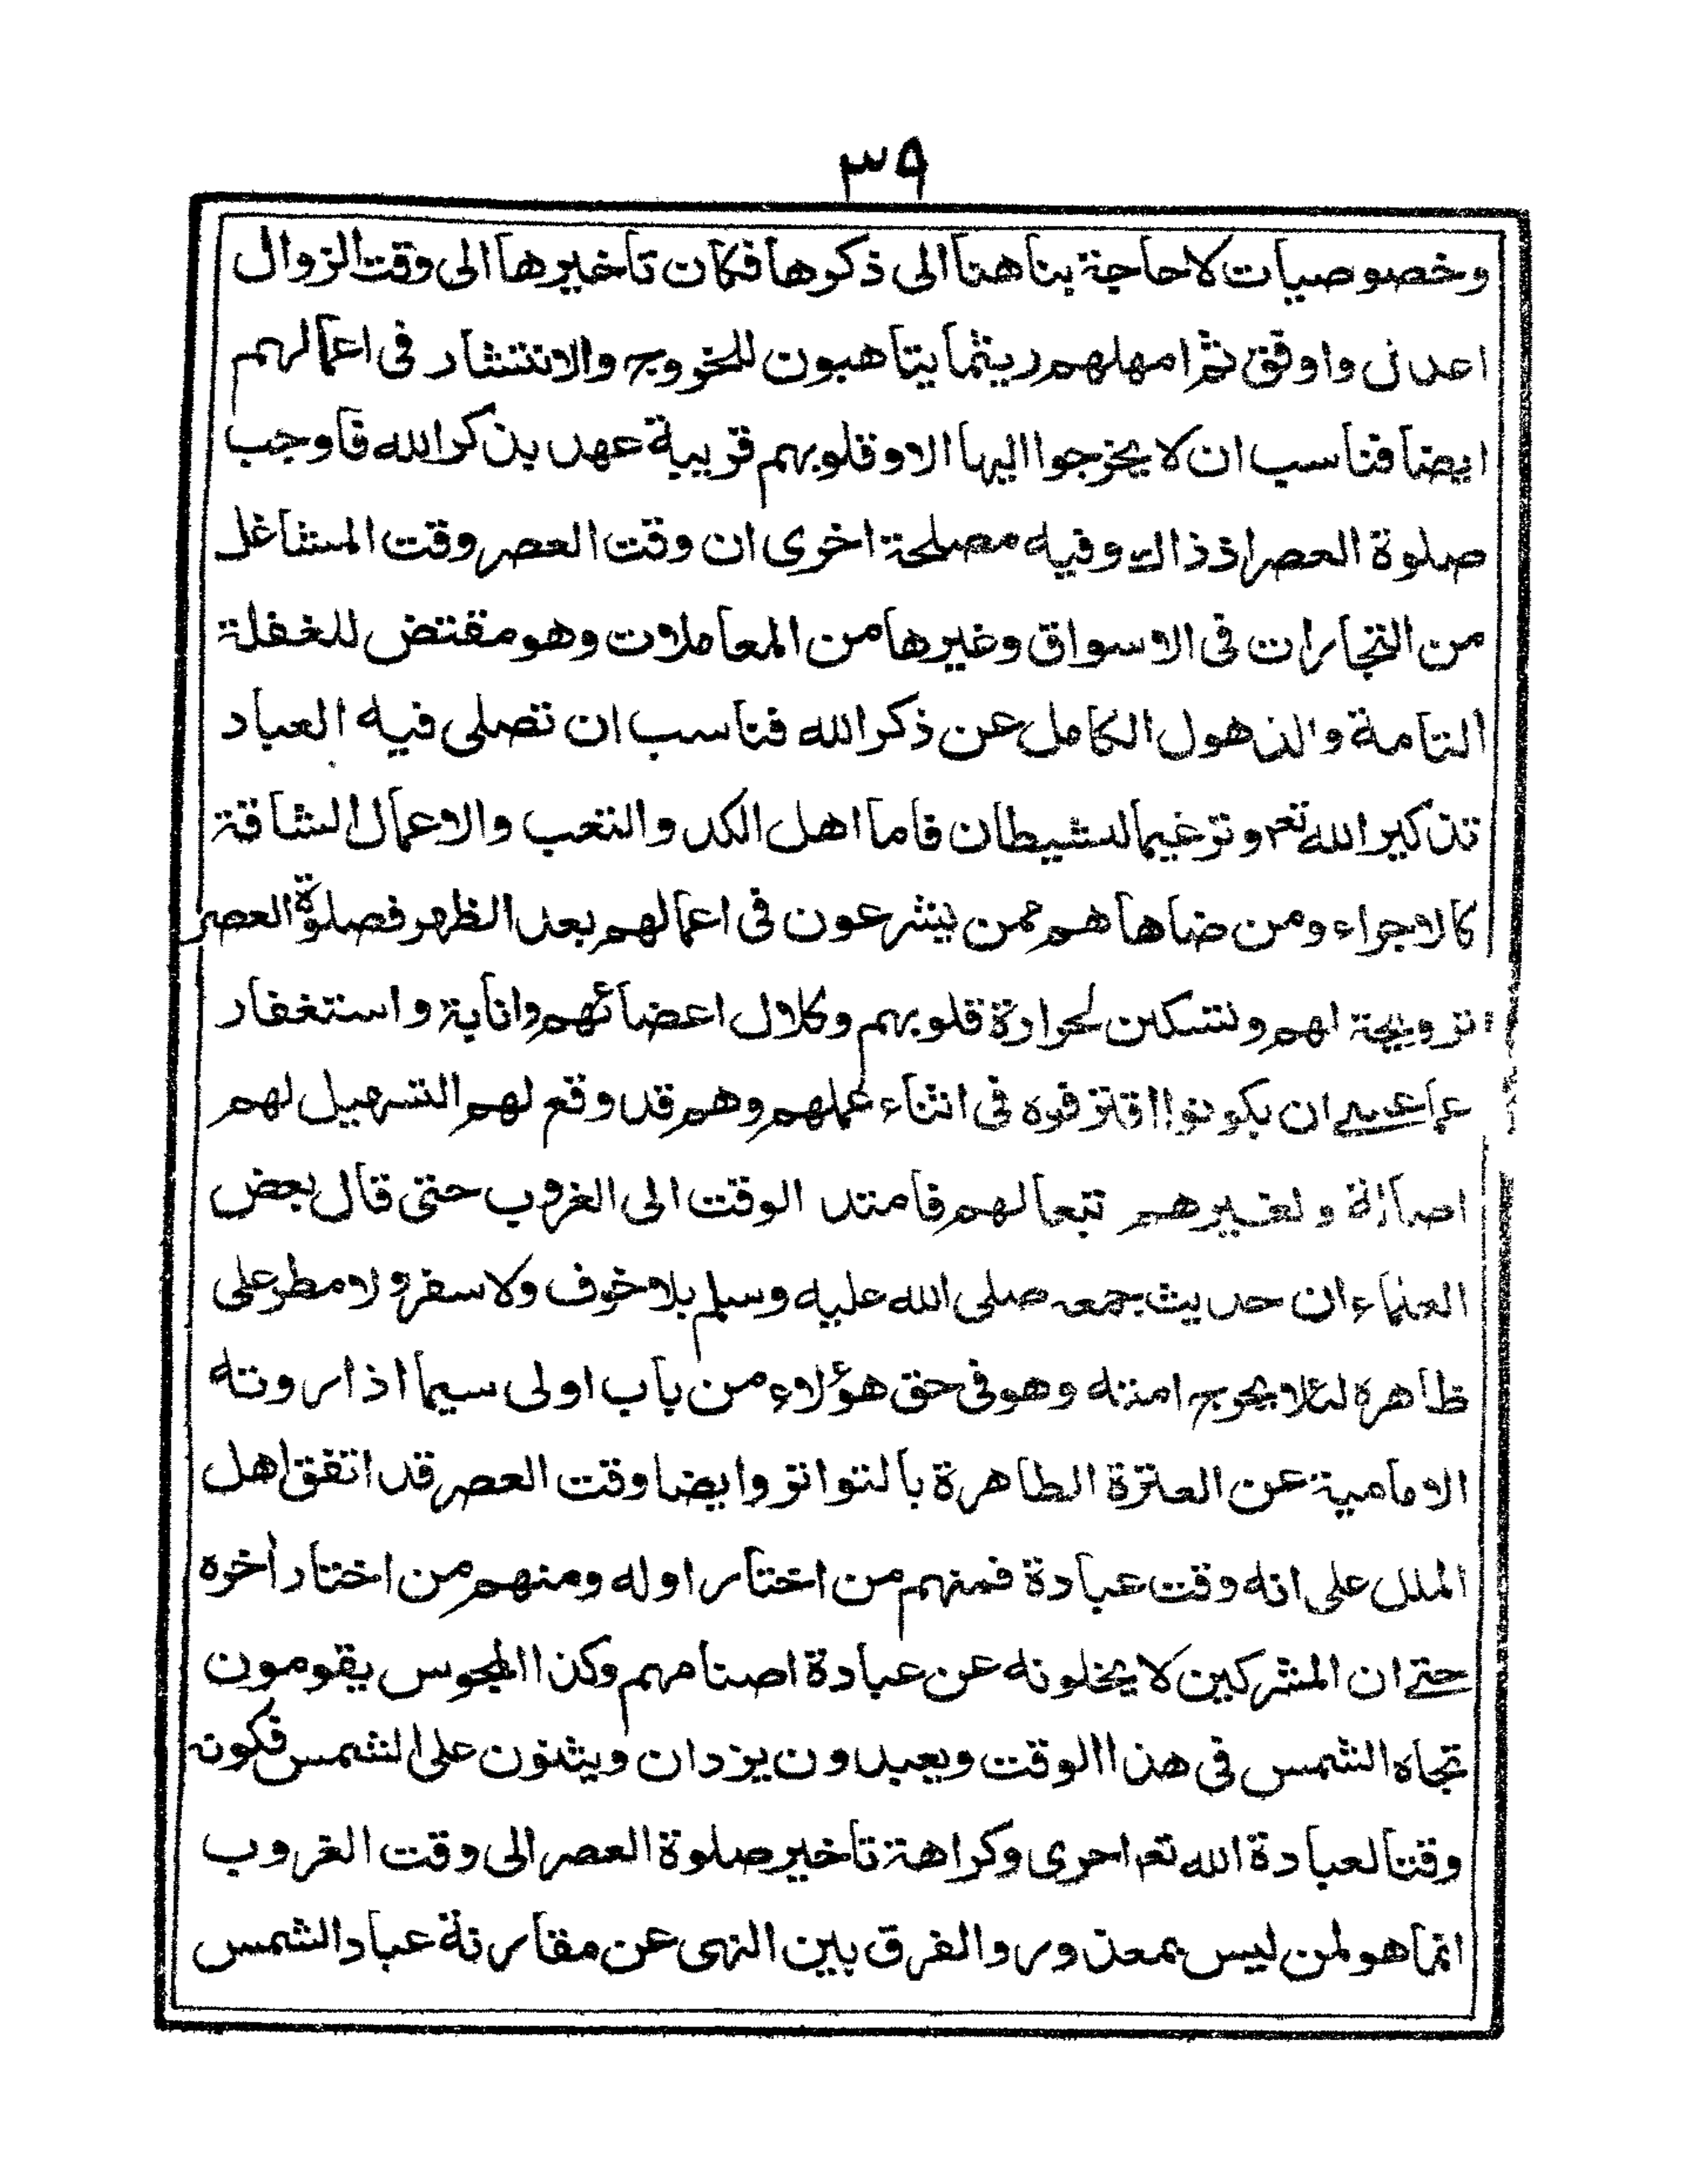 ٣٩
وخصوصيات لا حاجة بنا هنا الى ذكرها فكان تاخيرها الى وقت الزوال
اعدل واوفق ثم امهلهم ريثما يتاهبون للخروج والانتشار فى اعمالهم
ايضا فناسب ان لا يخرجوا اليها الا وقلوبهم قريبة عهد بذكر الله فاوجب
صلوة العصر اذ ذاك وفيه مصلحة اخرى ان وقت العصر وقت المشاغل
من التجارات فى الاسواق وغيرها من المعاملات وهو مقتض للغفلة
التامة والذهول الكامل عن ذكر الله فناسب ان تصلى فيه العباد
تذكيرا لله تعم وترغيما للشيطان فاما اهل الكد والتعب والاعمال الشاقة
كالاجراء ومن ضاهاهم ممن يشرعون فى اعمالهم بعد الظهر فصلوة العصر
ترويحة لهم وتسكين لحرارة قلوبهم وكلال اعضائهم وانابة واستغفار
عما عسى ان يكونوا اقترفوه فى اثناء عملهم وهم قد وقع لهم التسهيل لهم
اصالة ولغيرهم تبعا لهم فامتد الوقت الى الغروب حتى قال بعض
العلماء ان حديث جمعه صلى الله عليه وسلم بلا خوف ولا سفر ولا مطر على
ظاهره لئلا يحرج امته وهو فى حق هؤلاء من باب اولى سيما اذا روته
الامامية عن العترة الطاهرة بالتواتر وايضا وقت العصر قد اتفق اهل
الملل على انه وقت عبادة فمنهم من اختار اوله ومنهم من اختار أخره
حتى ان المشركين لا يخلونه عن عبادة اصنامهم وكذا المجوس يقومون
تجاه الشمس فى هذا الوقت ويعبدون يزدان ويثنون على الشمس فكونه
وقتا لعبادة الله تعم احرى وكراهة تاخير صلوة العصر الى وقت الغروب
انما هو لمن ليس بمعذور والفرق بين النهى عن مقارنة عباد الشمس